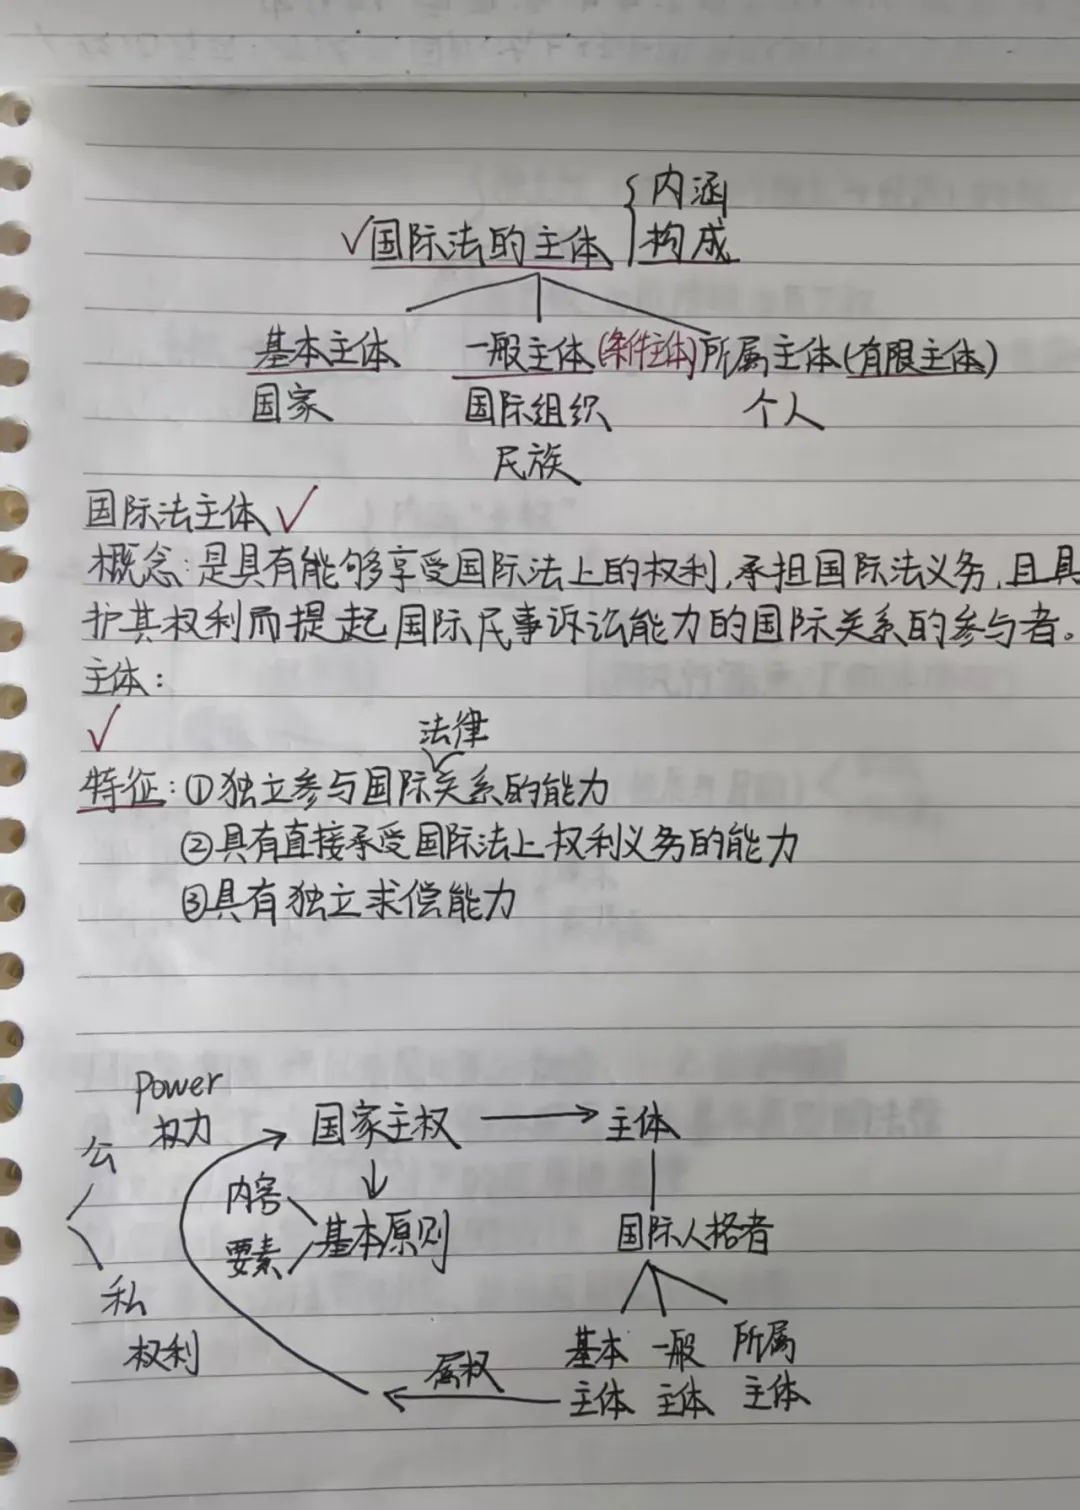 内涵
√国际法的主体 构成
基本主体 一般主体(条件主体) 所属主体(有限主体)
国家 国际组织 个人
民族
国际法主体 √
概念:是具有能够享受国际法上的权利,承担国际法义务,且具
护其权利而提起国际民事诉讼能力的国际关系的参与者。
主体:
√ 法律
特征:①独立参与国际关系的能力
②具有直接承受国际法上权利义务的能力
③具有独立求偿能力
Power
权力 国家主权 主体
公
内容
要素 基本原则 国际人格者
私
权利 基本 一般 所属
属权 主体 主体 主体